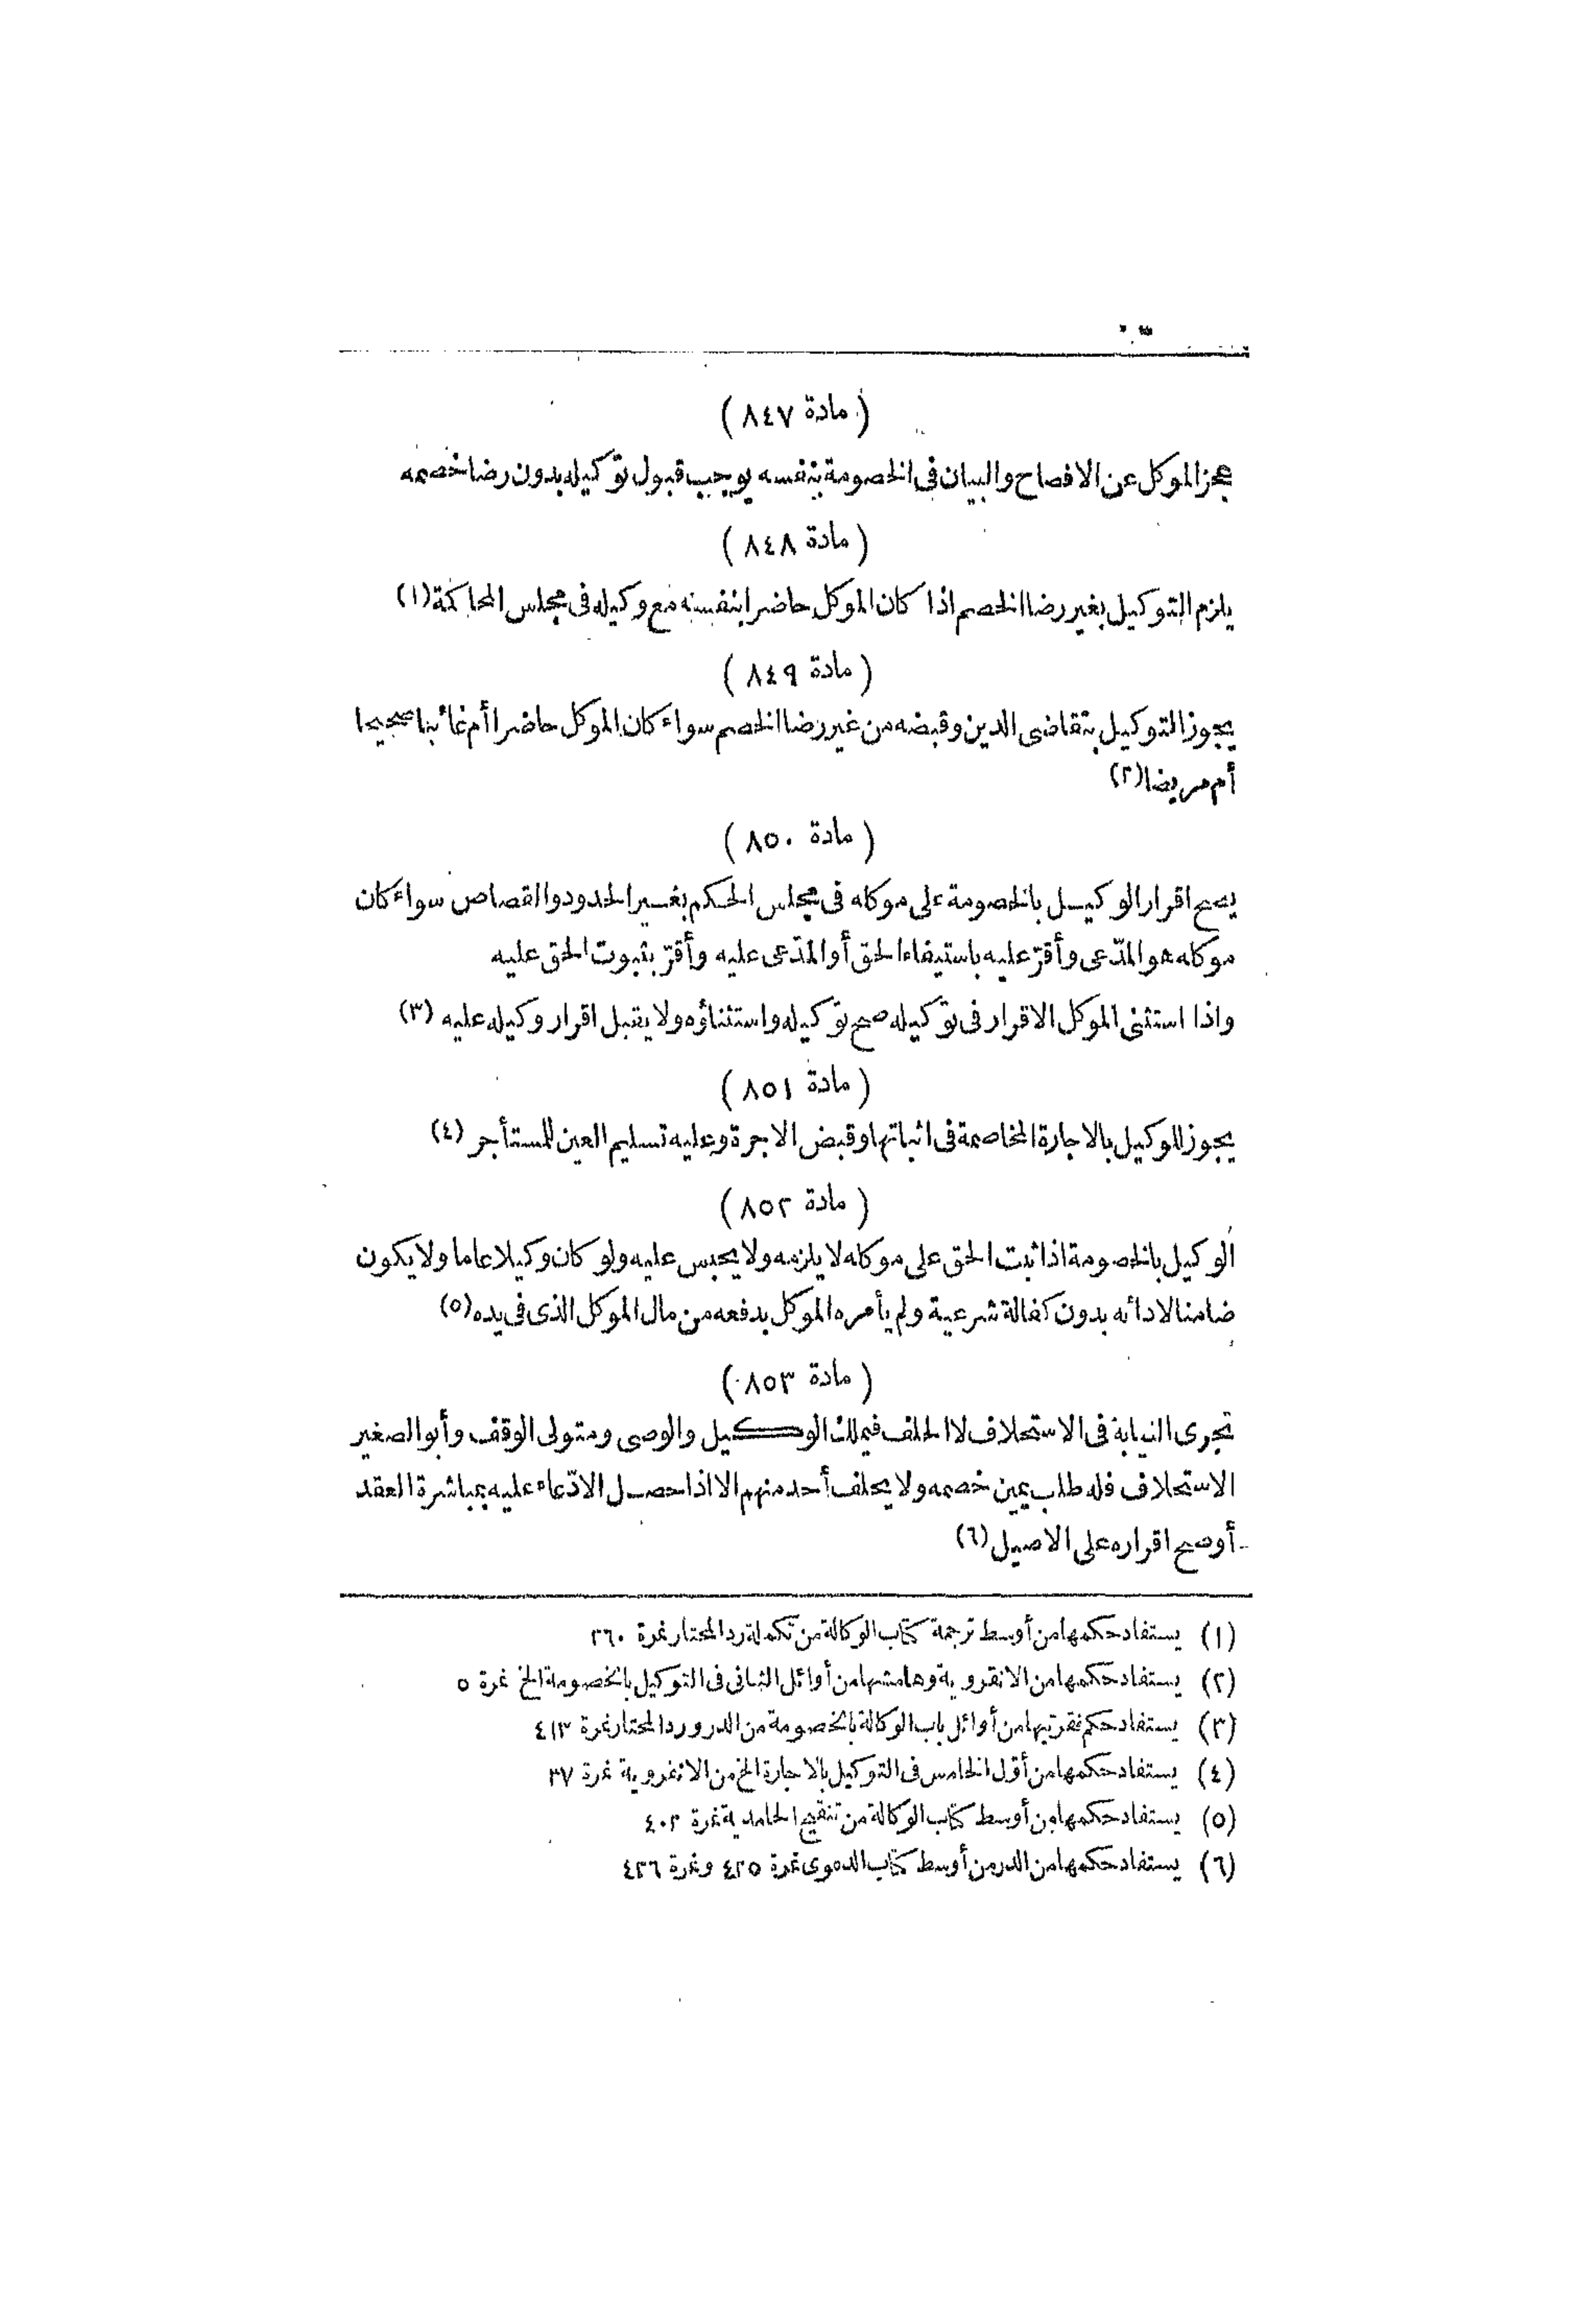 ( مادة ٨٤٧ )
عجز الموكل عن الافصاح والبيان فى الخصومة بنفسه يوجب قبول توكيله بدون رضا خصمه
( مادة ٨٤٨ )
يلزم التوكيل بغير رضا الخصم اذا كان الموكل حاضرا بنفسه مع وكيله فى مجلس المحاكمة (١)
( مادة ٨٤٩ )
يجوز التوكيل بتقاضى الدين وقبضه من غير رضا الخصم سواء كان الموكل حاضرا أم غائبا صحيحا
أم مريضا (٢)
( مادة ٨٥٠ )
يصح اقرار الوكيل بالخصومة على موكله فى مجلس الحكم بغير الحدود والقصاص سواء كان
موكله هو المدّعى وأقرّ عليه باستيفاء الحق أو المدّعى عليه وأقرّ بثبوت الحق عليه
واذا استثنى الموكل الاقرار فى توكيله صح توكيله واستثناؤه ولا يقبل اقرار وكيله عليه (٣)
( مادة ٨٥١ )
يجوز للوكيل بالاجارة المخاصمة فى اثباتها وقبض الاجرة وعليه تسليم العين للمستأجر (٤)
( مادة ٨٥٢ )
الوكيل بالخصومة اذا ثبت الحق على موكله لا يلزمه ولا يحبس عليه ولو كان وكيلا عاما ولا يكون
ضامنا لادائه بدون كفالة شرعية ولم يأمره الموكل بدفعه من مال الموكل الذى فى يده (٥)
( مادة ٨٥٣ )
تجرى النيابة فى الاستحلاف لا الحلف فيملك الوكيل والوصى ومتولى الوقف وأبو الصغير
الاستحلاف فله طلب يمين خصمه ولا يحلف أحد منهم الا اذا حصل الادّعاء عليه بمباشرة العقد
أو صح اقراره على الاصيل (٦)
(١) يستفاد حكمها من أوسط ترجمة كتاب الوكالة من تكملة رد المحتار نمرة ٢٦٠
(٢) يستفاد حكمها من الانقروية وهامشها من أوائل الثانى فى التوكيل بالخصومة الخ نمرة ٥
(٣) يستفاد حكم فقرتيها من أوائل باب الوكالة بالخصومة من الدر ورد المحتار نمرة ٤١٣
(٤) يستفاد حكمها من أوّل الخامس فى التوكيل بالاجارة الخ من الانقروية نمرة ٣٧
(٥) يستفاد حكمها من أوسط كتاب الوكالة من تنقيح الحامدية نمرة ٤٠٢
(٦) يستفاد حكمها من الدر من أوسط كتاب الدعوى نمرة ٤٢٥ ونمرة ٤٢٦